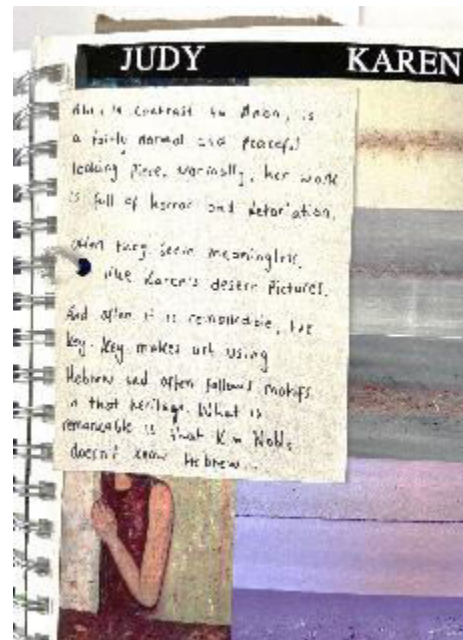 JUDY KAREN
in contrast to is
a fairly normal and peaceful
looking piece. Normally, her work
is full of horror and
often they seem meaningless,
like Karen's desert pictures.
And often it is remarkable, like
Key. Key makes art using
Hebrew and often follows motifs
in that heritage. What is
remarkable is that Kim Noble
doesn't know Hebrew...